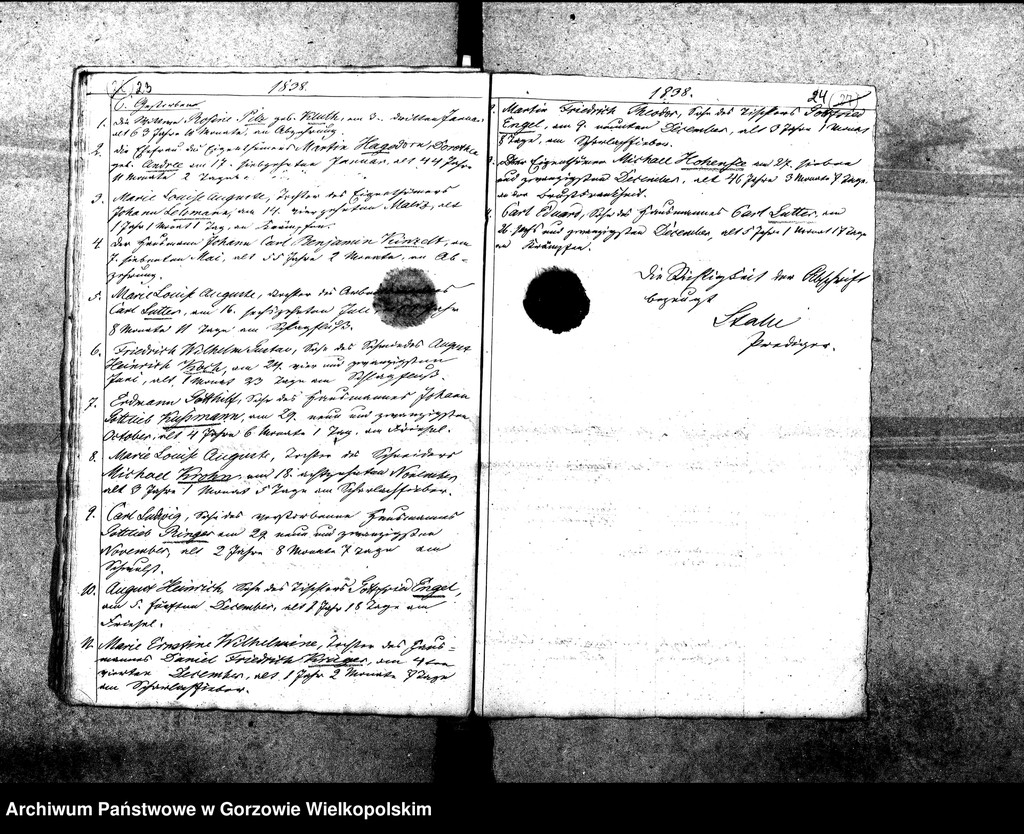 23
1838.
C. Gestorbene
1. die Wittwe Rosine Pilz geb. Kluth, am 3. dritten Janua.
alt 63 Jahre 10 Monate, an Abzehrung.
2. die Ehefrau des Eigenthümers Martin Hagedorn, Dorothea
geb. Andree am 17. siebzehnten Januar, alt 44 Jahre
11 Monate 2 Tage
3. Marie Louise Auguste, Tochter des Eigenthümers
Johann Lehmann, am 14. vierzehnten März, alt
1 Jahr 1 Monat 1 Tag, an Krämpfen.
4. der Hausmann Johann Carl Benjamin Künzelt, am
7. siebenten Mai, alt 55 Jahre 2 Monate, an Ab-
zehrung.
5. Marie Louise Auguste, Tochter des
Carl Sutter, am 16. sechszehnten Juli
8 Monate 11 Tage am Schlagfluß.
6. Friedrich Wilhelm Gustav, Sohn des Schneiders August
Heinrich Koch, am 24. vier und zwanzigsten
Juni, alt 1 Monat 23 Tage am Schlagfluß.
7. Erdmann Gotthilf, Sohn des Hausmannes Johann
Gottlieb Kußmann, am 29. neun und zwanzigsten
October, alt 4 Jahre 6 Monate 1 Tag, an Friesel.
8. Marie Louise Auguste, Tochter des Schneiders
Michael Krohn, am 18. achtzehnten November,
alt 3 Jahre 1 Monat 5 Tage am Scharlachfieber.
9. Carl Ludwig, Sohn des verstorbenen Hausmannes
Gottlieb Ringer am 29 neun und zwanzigsten
November, alt 2 Jahre 8 Monate 7 Tage am
Schwulst.
10. August Heinrich, Sohn des Tischlers Gottfried Engel,
am 5. fünften December, alt 1 Jahr 18 Tage am
Friesel.
11. Marie Ernstine Wilhelmine, Tochter des Haus-
mannes Daniel Friedrich Krüger, am 4ten
vierten December, alt 1 Jahr 2 Monate 7 Tage
am Scharlachfieber.
1838.
24
Martin Friedrich Theodor, Sohn des Tischlers Gottfried
Engel, am 9. neunten December, alt 3 Jahre 1 Monat
8 Tage, am Scharlachfieber.
Der Eigenthümer Michael Hohensee am 27. sieben
und zwanzigsten December, alt 46 Jahre 3 Monate 7 Tage
an der Brustkrankheit.
Carl Eduard, Sohn des Hausmannes Carl Sutter, am
26. sechs und zwanzigsten December, alt 5 Jahre 1 Monat 17 Tage
an Krämpfen.
Die Richtigkeit der Abschrift
bezeugt
Prediger.
Archiwum Państwowe w Gorzowie Wielkopolskim